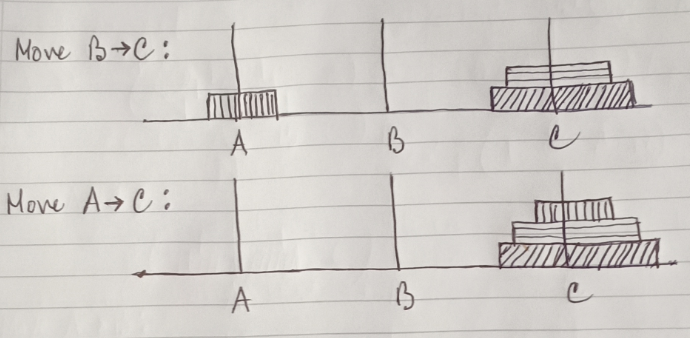 Move B→C:
A B C
Move A→C:
A B C